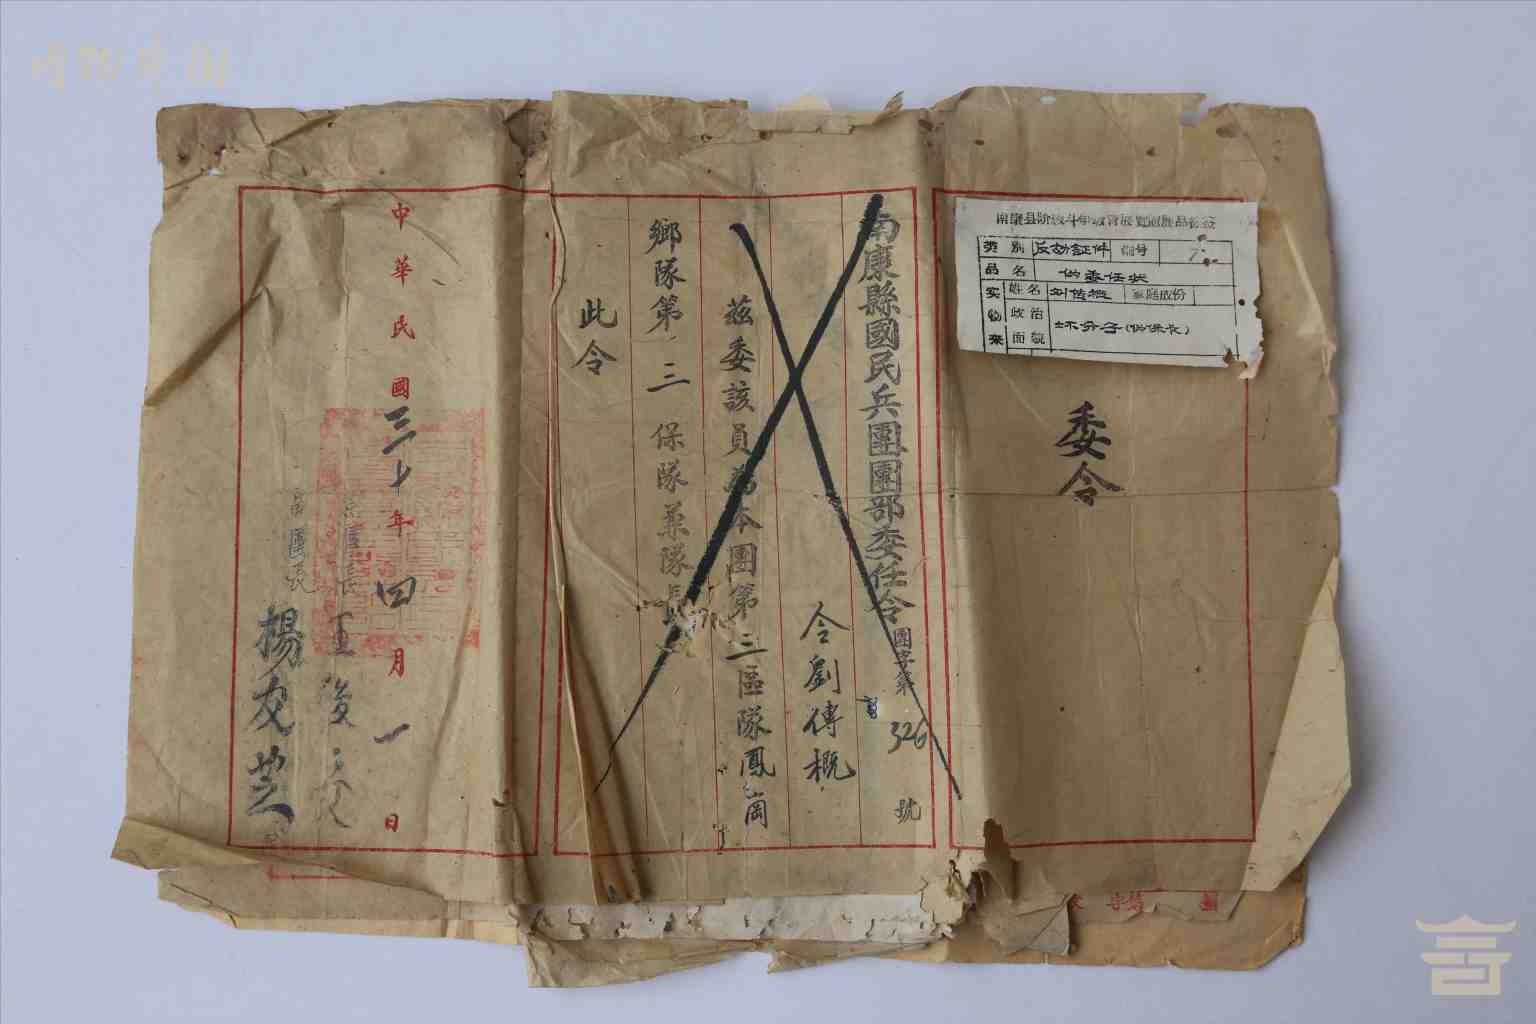 委令
南康縣國民兵團團部委任令 團字第326號
令劉傳概
茲委該員為本團第三區隊鳳岡
鄉隊第三保隊兼隊長
此令
中華民國三十年四月一日
團長王
副團長楊友芝
南康县阶级斗争教育展览馆展品标签
类别 反动証件 编号 7
品名 伪委任状
实物来
姓名 刘传概 家庭成份
政治面貌 坏分子(伪保长)